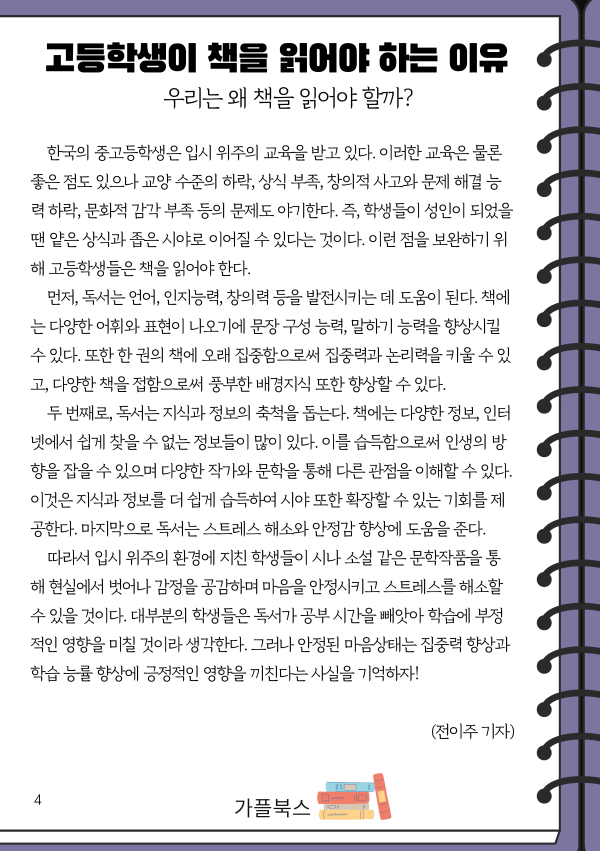 고등학생이 책을 읽어야 하는 이유
우리는 왜 책을 읽어야 할까?
한국의 중고등학생은 입시 위주의 교육을 받고 있다. 이러한 교육은 물론
좋은 점도 있으나 교양 수준의 하락, 상식 부족, 창의적 사고와 문제 해결 능
력 하락, 문화적 감각 부족 등의 문제도 야기한다. 즉, 학생들이 성인이 되었을
땐 얕은 상식과 좁은 시야로 이어질 수 있다는 것이다. 이런 점을 보완하기 위
해 고등학생들은 책을 읽어야 한다.
먼저, 독서는 언어, 인지능력, 창의력 등을 발전시키는 데 도움이 된다. 책에
는 다양한 어휘와 표현이 나오기에 문장 구성 능력, 말하기 능력을 향상시킬
수 있다. 또한 한 권의 책에 오래 집중함으로써 집중력과 논리력을 키울 수 있
고, 다양한 책을 접함으로써 풍부한 배경지식 또한 향상할 수 있다.
두 번째로, 독서는 지식과 정보의 축척을 돕는다. 책에는 다양한 정보, 인터
넷에서 쉽게 찾을 수 없는 정보들이 많이 있다. 이를 습득함으로써 인생의 방
향을 잡을 수 있으며 다양한 작가와 문학을 통해 다른 관점을 이해할 수 있다.
이것은 지식과 정보를 더 쉽게 습득하여 시야 또한 확장할 수 있는 기회를 제
공한다. 마지막으로 독서는 스트레스 해소와 안정감 향상에 도움을 준다.
따라서 입시 위주의 환경에 지친 학생들이 시나 소설 같은 문학작품을 통
해 현실에서 벗어나 감정을 공감하며 마음을 안정시키고 스트레스를 해소할
수 있을 것이다. 대부분의 학생들은 독서가 공부 시간을 빼앗아 학습에 부정
적인 영향을 미칠 것이라 생각한다. 그러나 안정된 마음상태는 집중력 향상과
학습 능률 향상에 긍정적인 영향을 끼친다는 사실을 기억하자!
(전이주 기자)
4
가플북스